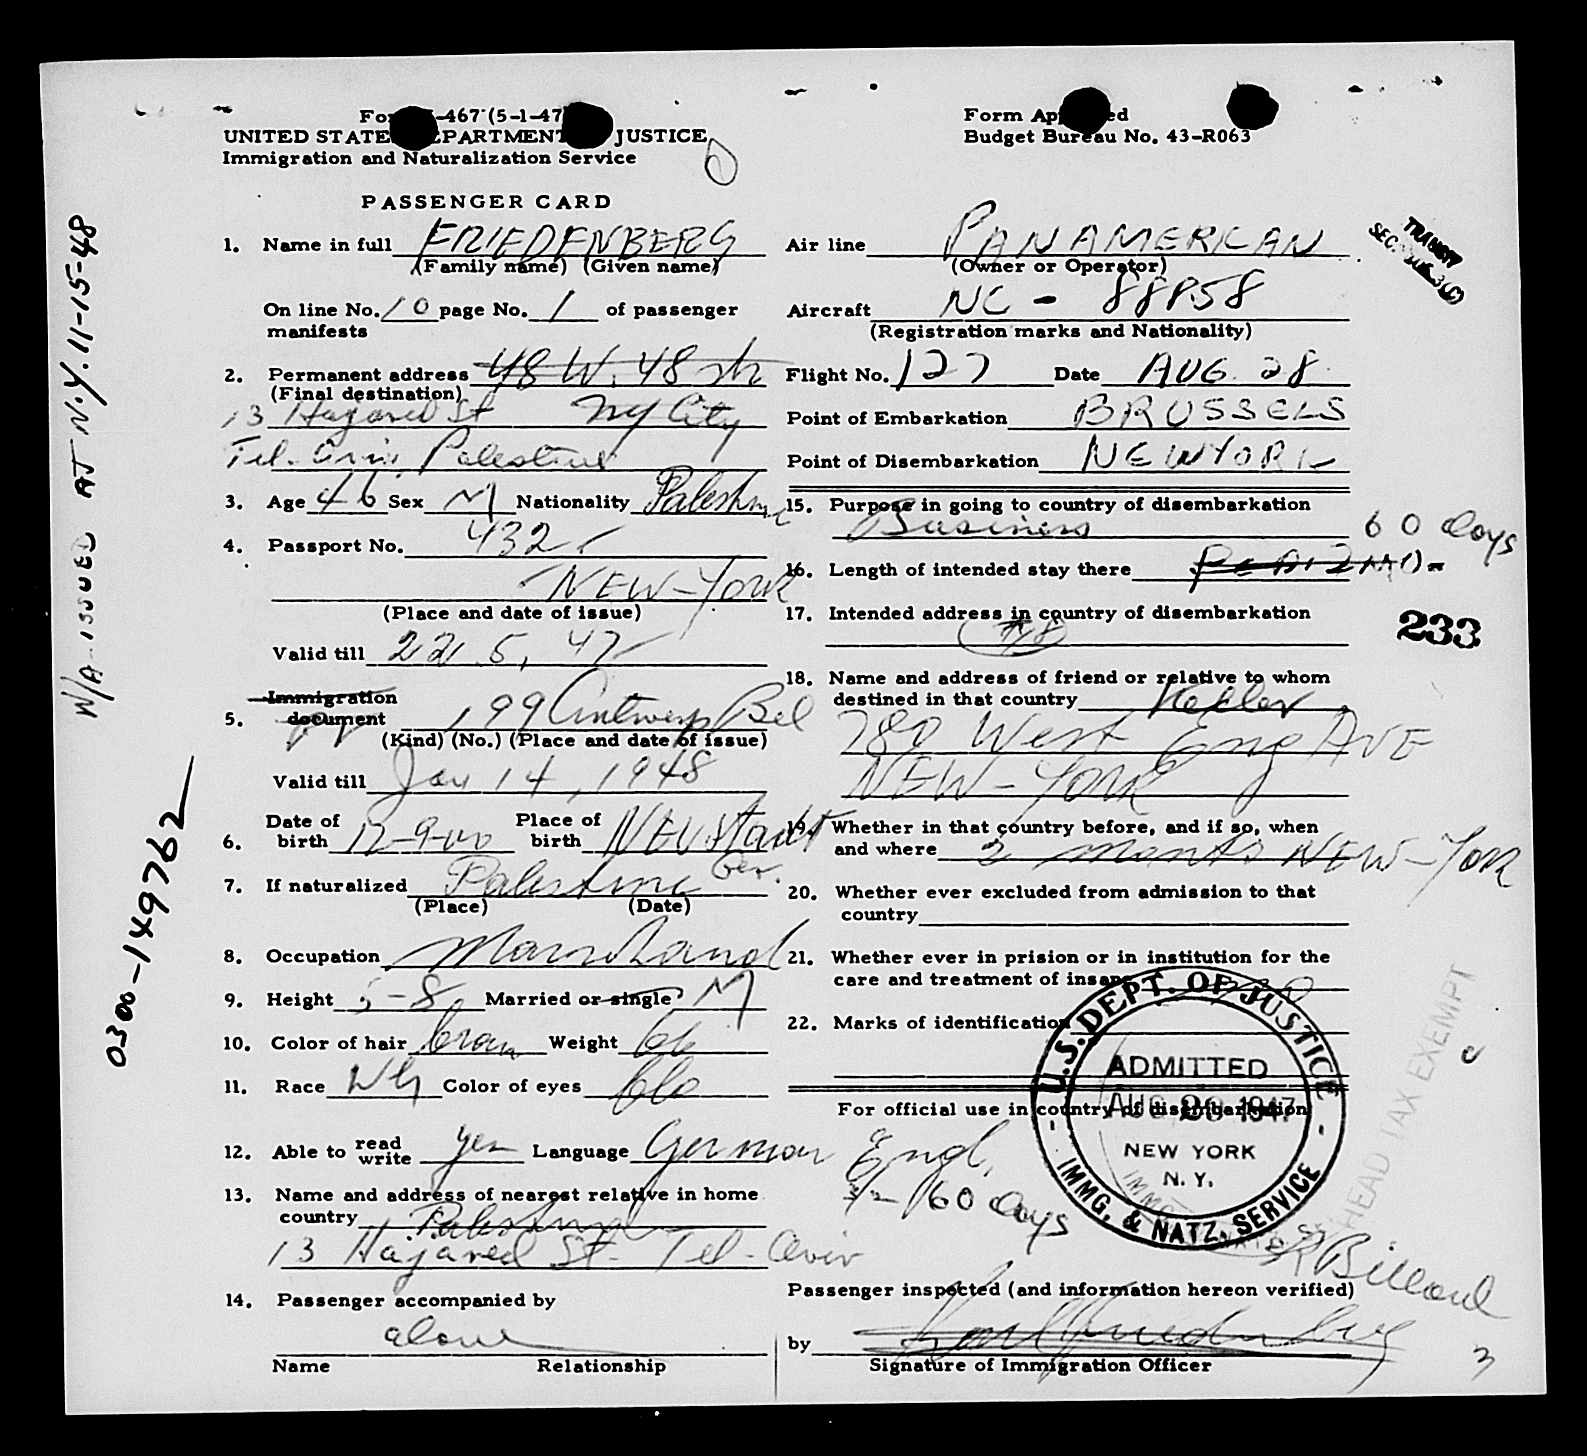 Form I-467 (5-1-47)
UNITED STATES DEPARTMENT OF JUSTICE
Immigration and Naturalization Service
Form Approved
Budget Bureau No. 43-R063
PASSENGER CARD
1. Name in full FRIEDENBERG
(Family name) (Given name)
On line No. 10 page No. 1 of passenger
manifests
2. Permanent address 48 W. 48 str
(Final destination)
13 Hajared St NY City
Tel-Aviv, Palestine
3. Age 46 Sex M Nationality Palestine
4. Passport No. 432
NEW-YORK
(Place and date of issue)
Valid till 22.5.47
5. Immigration
document 199 Antwerp Bel
(Kind) (No.) (Place and date of issue)
Valid till Jan 14, 1948
6. Date of
birth 12-9-00 Place of
birth NEUstadt
Ger.
7. If naturalized Palestine
(Place) (Date)
8. Occupation
9. Height 5-8 Married or single M
10. Color of hair brown Weight
11. Race Wh Color of eyes
12. Able to read
write yes Language German Engl.
13. Name and address of nearest relative in home
country
13 Hajared St- Tel-Aviv
14. Passenger accompanied by
alone
Name Relationship
Air line PANAMERICAN
(Owner or Operator)
Aircraft NC - 88858
(Registration marks and Nationality)
Flight No. 127 Date AUG. 28
Point of Embarkation BRUSSELS
Point of Disembarkation NEWYORK
15. Purpose in going to country of disembarkation
Business
60 days
16. Length of intended stay there
17. Intended address in country of disembarkation
18. Name and address of friend or relative to whom
destined in that country
780 West Eng AVE
NEW-YORK
19. Whether in that country before, and if so, when
and where 2 months NEW-YORK
20. Whether ever excluded from admission to that
country
21. Whether ever in prision or in institution for the
care and treatment of insane no
22. Marks of identification
For official use in country of disembarkation
60 days
U.S. DEPT. OF JUSTICE
ADMITTED
AUG 28 1947
NEW YORK
N. Y.
IMMG. & NATZ. SERVICE
HEAD TAX EXEMPT
Billard
Passenger inspected (and information hereon verified)
by
Signature of Immigration Officer
3
233
TRANSIT
W/A-ISSUED AT N.Y. 11-15-48
0300-149762